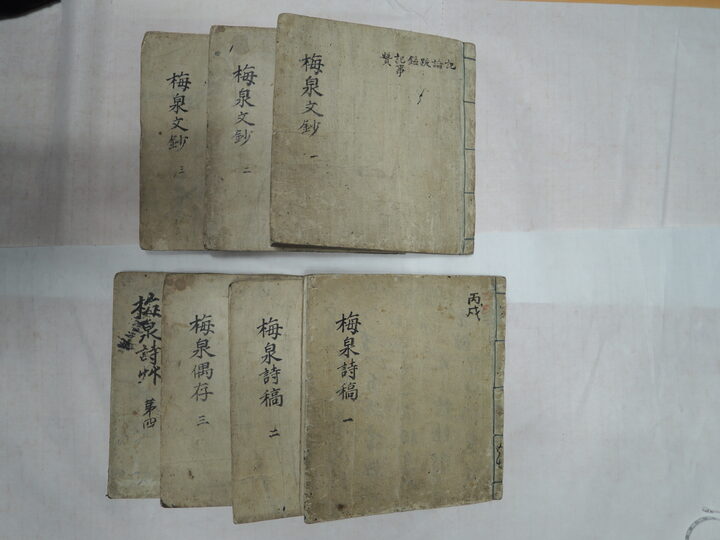 梅泉文鈔 一
記論跋銘記事贊
梅泉文鈔 二
梅泉文鈔 三
丙戌
梅泉詩稿 一
梅泉詩稿 二
梅泉偶存 三
梅泉詩艸 第四